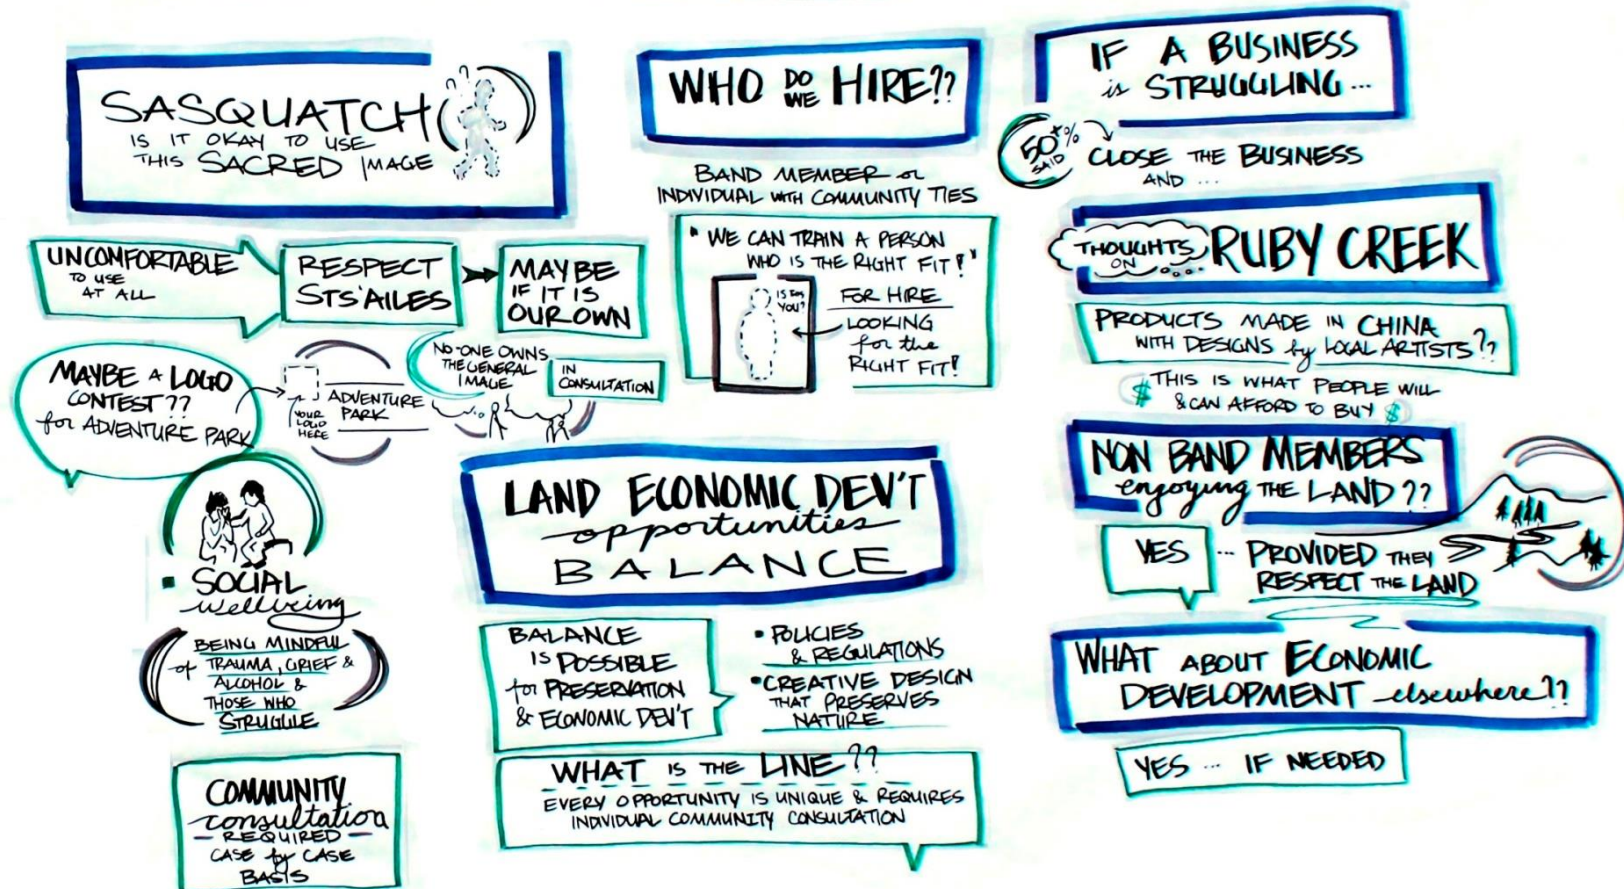 SASQUATCH
IS IT OKAY TO USE
THIS SACRED IMAGE
UNCOMFORTABLE
TO USE
AT ALL
RESPECT
STS'AILES
MAYBE
IF IT IS
OUR OWN
MAYBE A LOGO
CONTEST??
for ADVENTURE PARK
YOUR
LOGO
HERE
ADVENTURE
PARK
NO-ONE OWNS
THE GENERAL
IMAGE
IN
CONSULTATION
SOCIAL
wellbeing
BEING MINDFUL
of TRAUMA, GRIEF &
ALCOHOL &
THOSE WHO
STRUGGLE
COMMUNITY
consultation
- REQUIRED -
CASE by CASE
BASIS
WHO DO WE HIRE??
BAND MEMBER or
INDIVIDUAL WITH COMMUNITY TIES
"WE CAN TRAIN A PERSON
WHO IS THE RIGHT FIT!"
IS THIS
YOU?
FOR HIRE
LOOKING
for the
RIGHT FIT!
LAND ECONOMIC DEV'T
opportunities
BALANCE
BALANCE
IS POSSIBLE
for PRESERVATION
& ECONOMIC DEV'T
• POLICIES
& REGULATIONS
• CREATIVE DESIGN
THAT PRESERVES
NATURE
WHAT IS THE LINE??
EVERY OPPORTUNITY IS UNIQUE & REQUIRES
INDIVIDUAL COMMUNITY CONSULTATION
IF A BUSINESS
is STRUGGLING...
50+%
SAID
CLOSE THE BUSINESS
AND ...
THOUGHTS
ON
RUBY CREEK
PRODUCTS MADE IN CHINA
WITH DESIGNS by LOCAL ARTISTS??
$ THIS IS WHAT PEOPLE WILL
& CAN AFFORD TO BUY $
NON BAND MEMBERS
enjoying THE LAND??
YES ... PROVIDED THEY
RESPECT THE LAND
WHAT ABOUT ECONOMIC
DEVELOPMENT elsewhere??
YES ... IF NEEDED